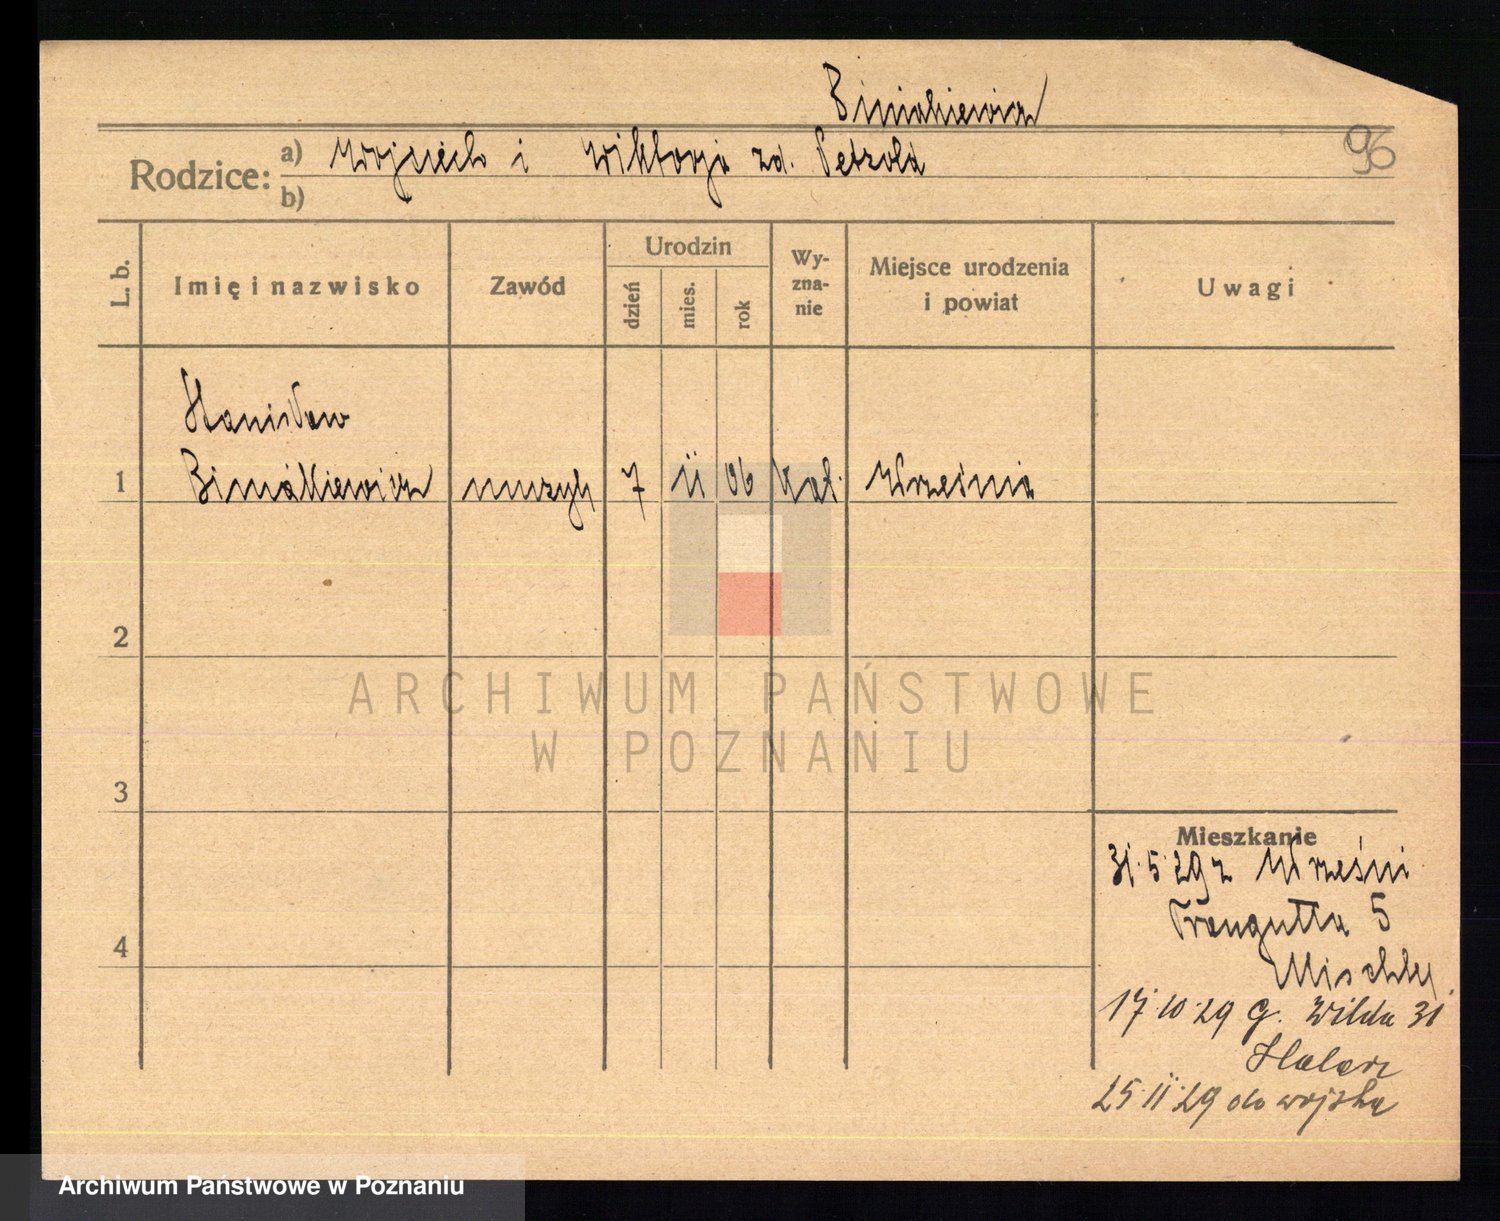 Biniakiewicz
96
Rodzice: a) Wojciech i Wiktorja zd. Petzold
b)
L. b. Imię i nazwisko Zawód Urodzin dzień mies. rok Wy-zna-nie Miejsce urodzenia i powiat Uwagi
Stanisław
1 Biniakiewicz muzyk 7 II 06 kat. Września
2
ARCHIWUM PAŃSTWOWE
W POZNANIU
3
Mieszkanie
31.5.29 z Wrześni
Traugutta 5
4
17.10.29 G. Wilda 31
25.11.29 do wojska
Archiwum Państwowe w Poznaniu